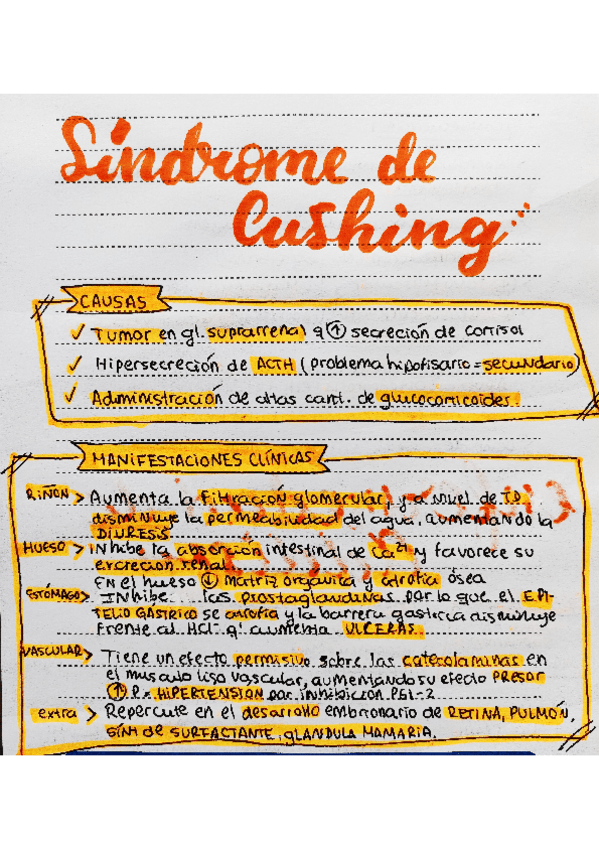 Síndrome de
Cushing...
CAUSAS
✓ Tumor en gl. suprarrenal q ↑ secreción de cortisol
✓ Hipersecreción de ACTH (problema hipofisario = secundario)
✓ Administración de altas cant. de glucocorticoides.
MANIFESTACIONES CLÍNICAS
RIÑON > Aumenta la filtración glomerular, y a nivel de T.D.
disminuye la permeabilidad del agua, aumentando la
DIURESIS
HUESO > inhibe la absorción intestinal de Ca²⁺ y favorece su
excrecion renal
EN el hueso ↓ matriz organica y atrofia ósea
ESTÓMAGO > INHibe las prostaglandinas por lo que el EPI-
TELIO GASTRICO se atrofia y la barrera gastrica disminuye
frente al HCl- q' aumenta ULCERAS.
VASCULAR > Tiene un efecto permisivo sobre las catecolaminas en
el musculo liso vascular, aumentando su efecto PRESOR
↑ P = HIPERTENSION por inhibicion PGI-2
extra > Repercute en el desarrollo embrionario de RETINA, PULMÓN,
SÍNT de SURFACTANTE, GLANDULA MAMARIA.